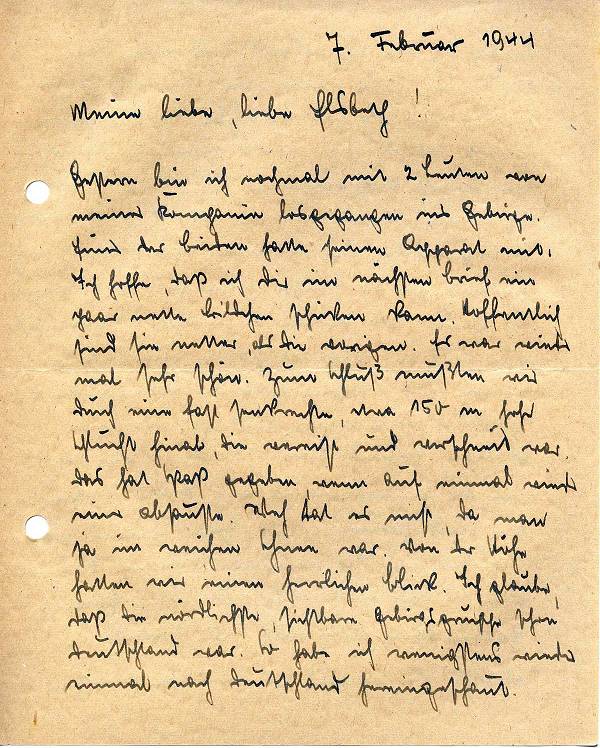 7. Februar 1944
Meine liebe, liebe Elsbeth!
Gestern bin ich nochmal mit 2 Leuten von
meiner Kompanie losgegangen ins Gebirge.
Einer der beiden hatte seinen Apparat mit.
Ich hoffe, daß ich dir im nächsten Brief ein
paar nette Bildchen schicken kann. Hoffentlich
sind sie netter, als die vorigen. Es war wieder
mal sehr schön. Zum Schluß mußten wir
durch eine fast senkrechte, etwa 150 m hohe
Schlucht hinab, die vereist und verschneit war.
Das hat Spaß gegeben, wenn auf einmal wieder
einer absauste. Weh tat es nicht, da man
ja im weichen Schnee war. Von der Höhe
hatten wir einen herrlichen Blick. Ich glaube,
daß die nördlichste, sichtbare Gebirgsgruppe schon
Deutschland war. So habe ich wenigstens wieder
einmal nach Deutschland hereingeschaut.